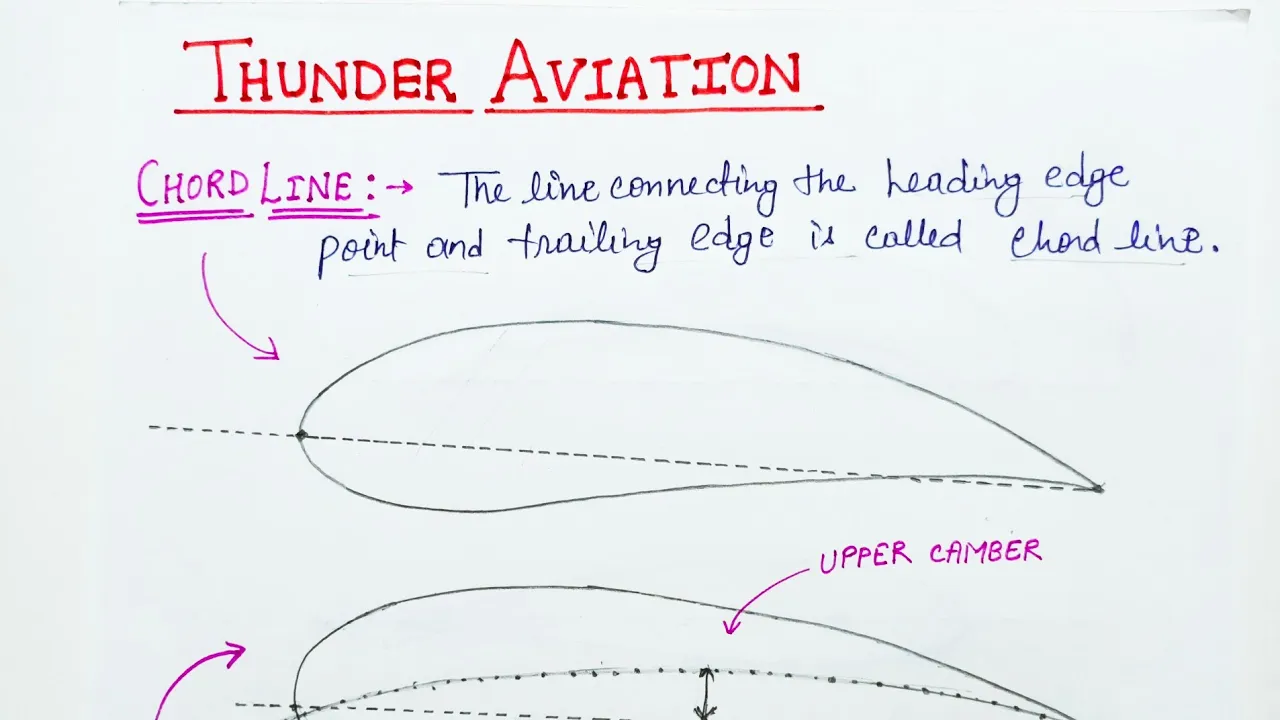 THUNDER AVIATION
CHORD LINE :→ The line connecting the leading edge
point and trailing edge is called chord line.
UPPER CAMBER